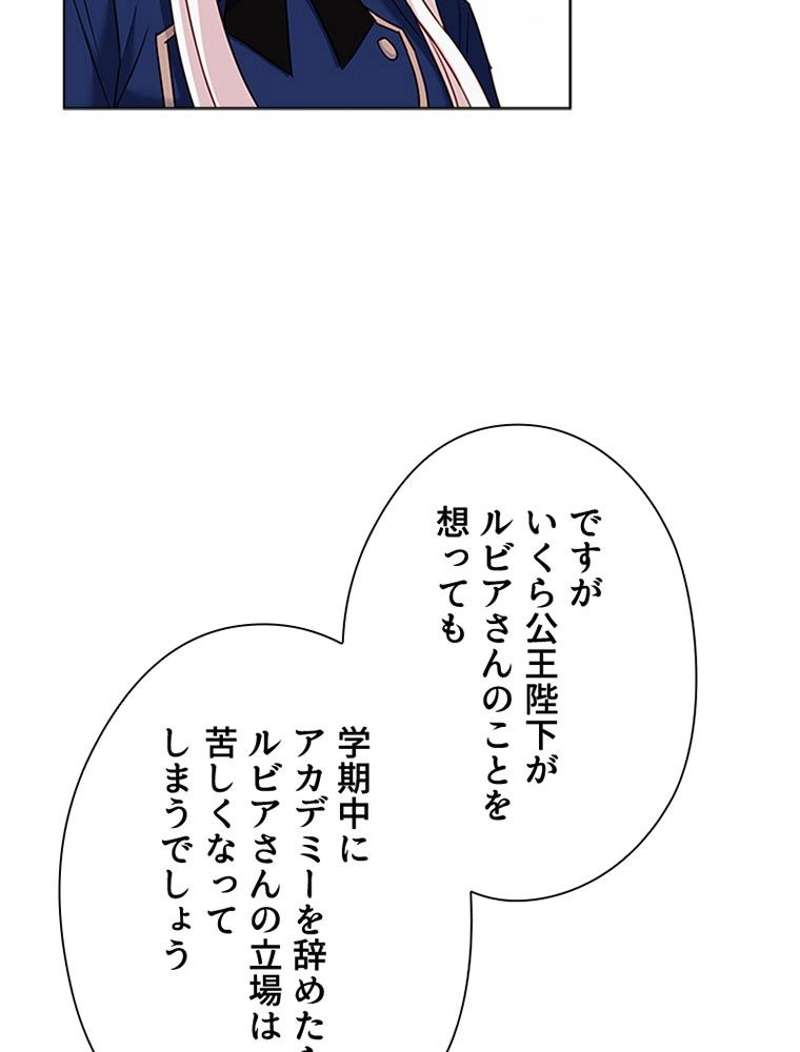 ですが
いくら公王陛下が
ルビアさんのことを
想っても
学期中に
アカデミーを辞めた
ルビアさんの立場は
苦しくなって
しまうでしょう